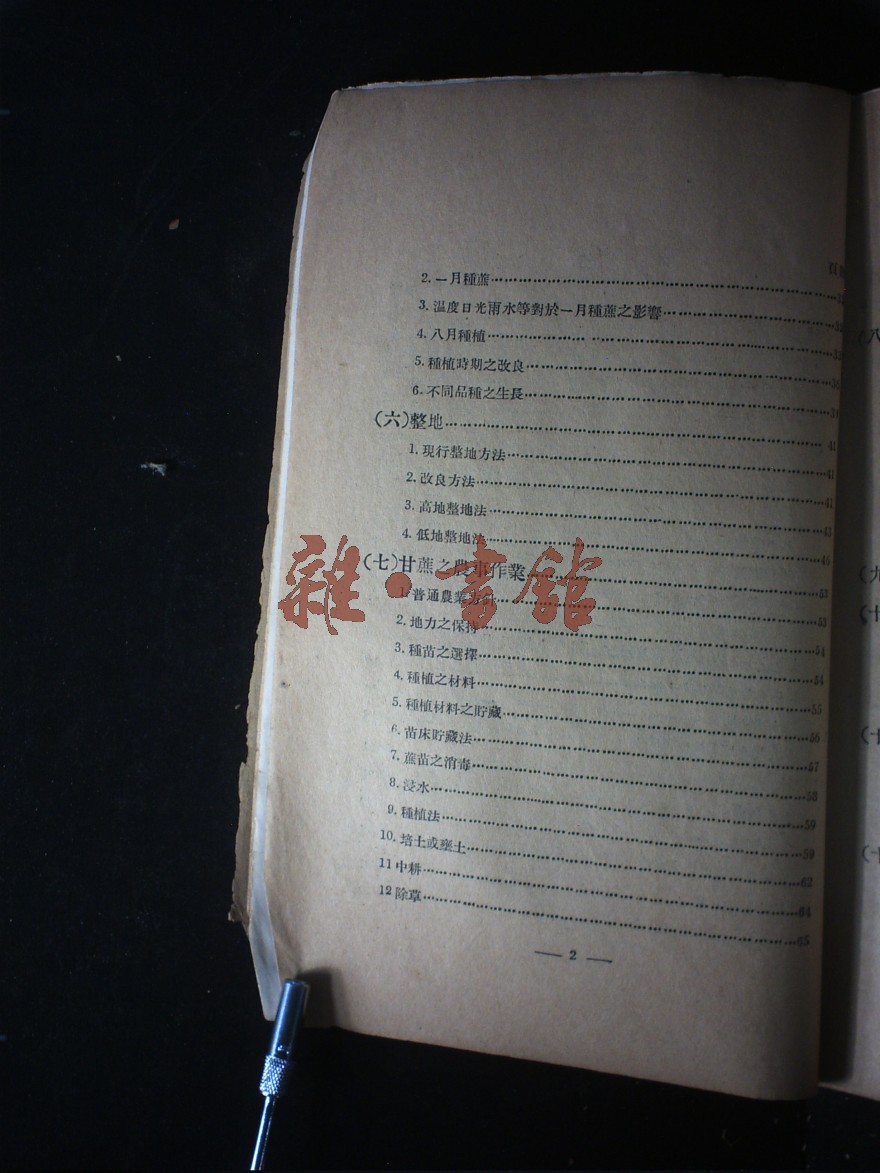 頁
2. 一月種蔗
3. 温度日光雨水等對於一月種蔗之影響
4. 八月種植
5. 種植時期之改良
6. 不同品種之生長……38
(六)整地……41
1. 現行整地方法……41
2. 改良方法……41
3. 高地整地法……43
4. 低地整地法……45
(七)甘蔗之農事作業……53
1. 普通農業方針……53
2. 地力之保持……54
3. 種苗之選擇……54
4. 種植之材料……55
5. 種植材料之貯藏……56
6. 苗床貯藏法……57
7. 蔗苗之消毒……58
8. 浸水……59
9. 種植法……59
10. 培土或壅土……62
11 中耕……64
12 除草……65
— 2 —
雜·書館